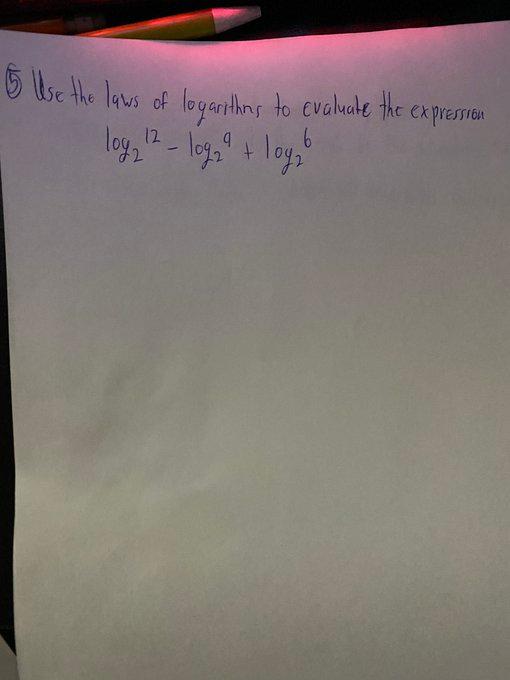 ⑤ Use the laws of logarithms to evaluate the expression
log₂¹² - log₂⁹ + log₂⁶